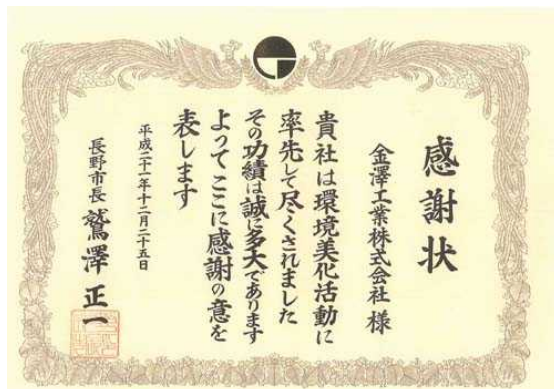 感謝状
金澤工業株式会社 様
貴社は環境美化活動に
率先して尽くされました
その功績は誠に多大であります
よってここに感謝の意を
表します
平成二十一年十二月二十五日
長野市長 鷲澤 正一